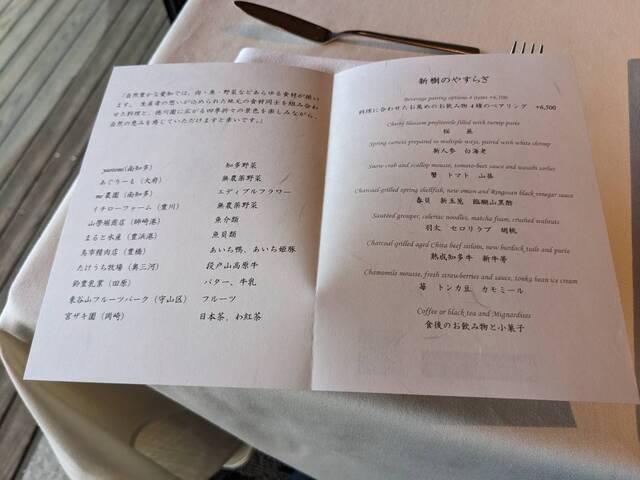 「自然豊かな愛知では、肉・魚・野菜などあらゆる食材が揃い
ます。生産者の想いが込められた地元の食材同士を組み合わ
せた料理と、徳川園に広がる四季折々の景色を楽しみながら、
自然の恵みを感じていただけますと幸いです。」
yaotomi(南知多) 知多野菜
あぐりーも (大府) 無農薬野菜
me農園 (南知多) エディブルフラワー
イチローファーム (豊川) 無農薬野菜
山磐城商店 (師崎港) 魚介類
まると水産 (豊浜港) 魚貝類
鳥市精肉店 (豊橋) あいち鴨、あいち姫豚
たけうち牧場 (奥三河) 段戸山高原牛
鈴豊乳業 (田原) バター、牛乳
東谷山フルーツパーク (守山区) フルーツ
宮ザキ園 (岡崎) 日本茶、わ紅茶
新樹のやすらぎ
Beverage pairing options 4 items +6,500
料理に合わせたお薦めのお飲み物 4 種のペアリング +6,500
Cherry blossom profiterole filled with turnip purée
桜 蕪
Spring carrots prepared in multiple ways, paired with white shrimp
新人参 白海老
Snow crab and scallop mousse, tomato-beet sauce and wasabi sorbet
蟹 トマト 山葵
Charcoal-grilled spring shellfish, new onion and Ryugasan black vinegar sauce
春貝 新玉葱 臨醐山黒酢
Sautéed grouper, celeriac noodles, matcha foam, crushed walnuts
羽太 セロリラブ 胡桃
Charcoal-grilled aged Chita beef sirloin, new burdock tuile and purée
熟成知多牛 新牛蒡
Chamomile mousse, fresh strawberries and sauce, tonka bean ice cream
苺 トンカ豆 カモミール
Coffee or black tea and Mignardises
食後のお飲み物と小菓子